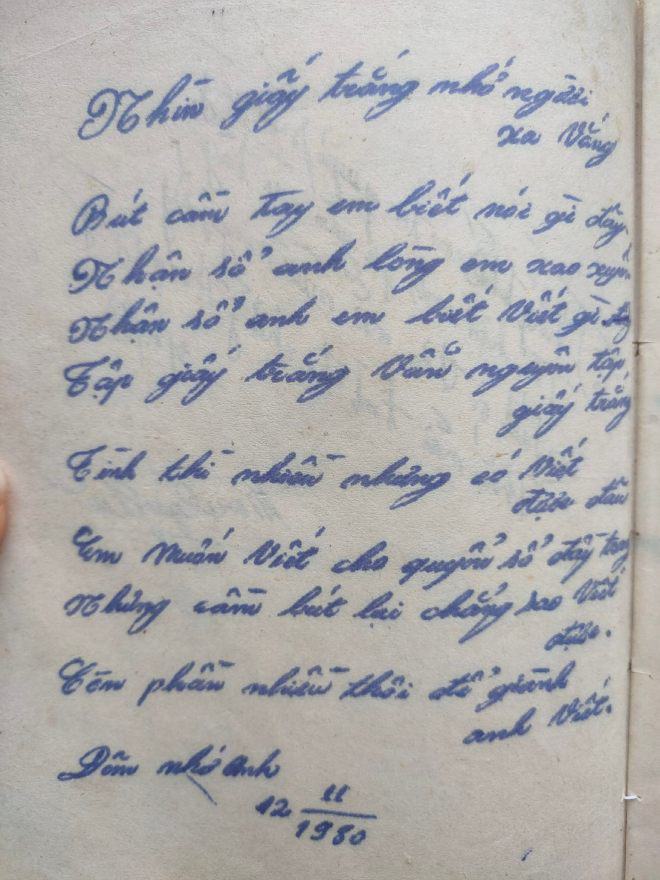 Nhìn giấy trắng nhớ người
xa Vắng
Bút cầm tay em biết nói gì đây
Nhận sổ anh lòng em xao xuyến
Nhận sổ anh em biết Viết gì đây
Tập giấy trắng Vẫn nguyên tập
giấy trắng
Tình thì nhiều nhưng có Viết
được đâu
Em Muốn Viết cho quyển sổ đầy trang
Nhưng cầm bút lại chẳng sao Viết
được.
Còn phần nhiều thôi để giành
anh Viết.
Đêm nhớ anh
12 11/1980